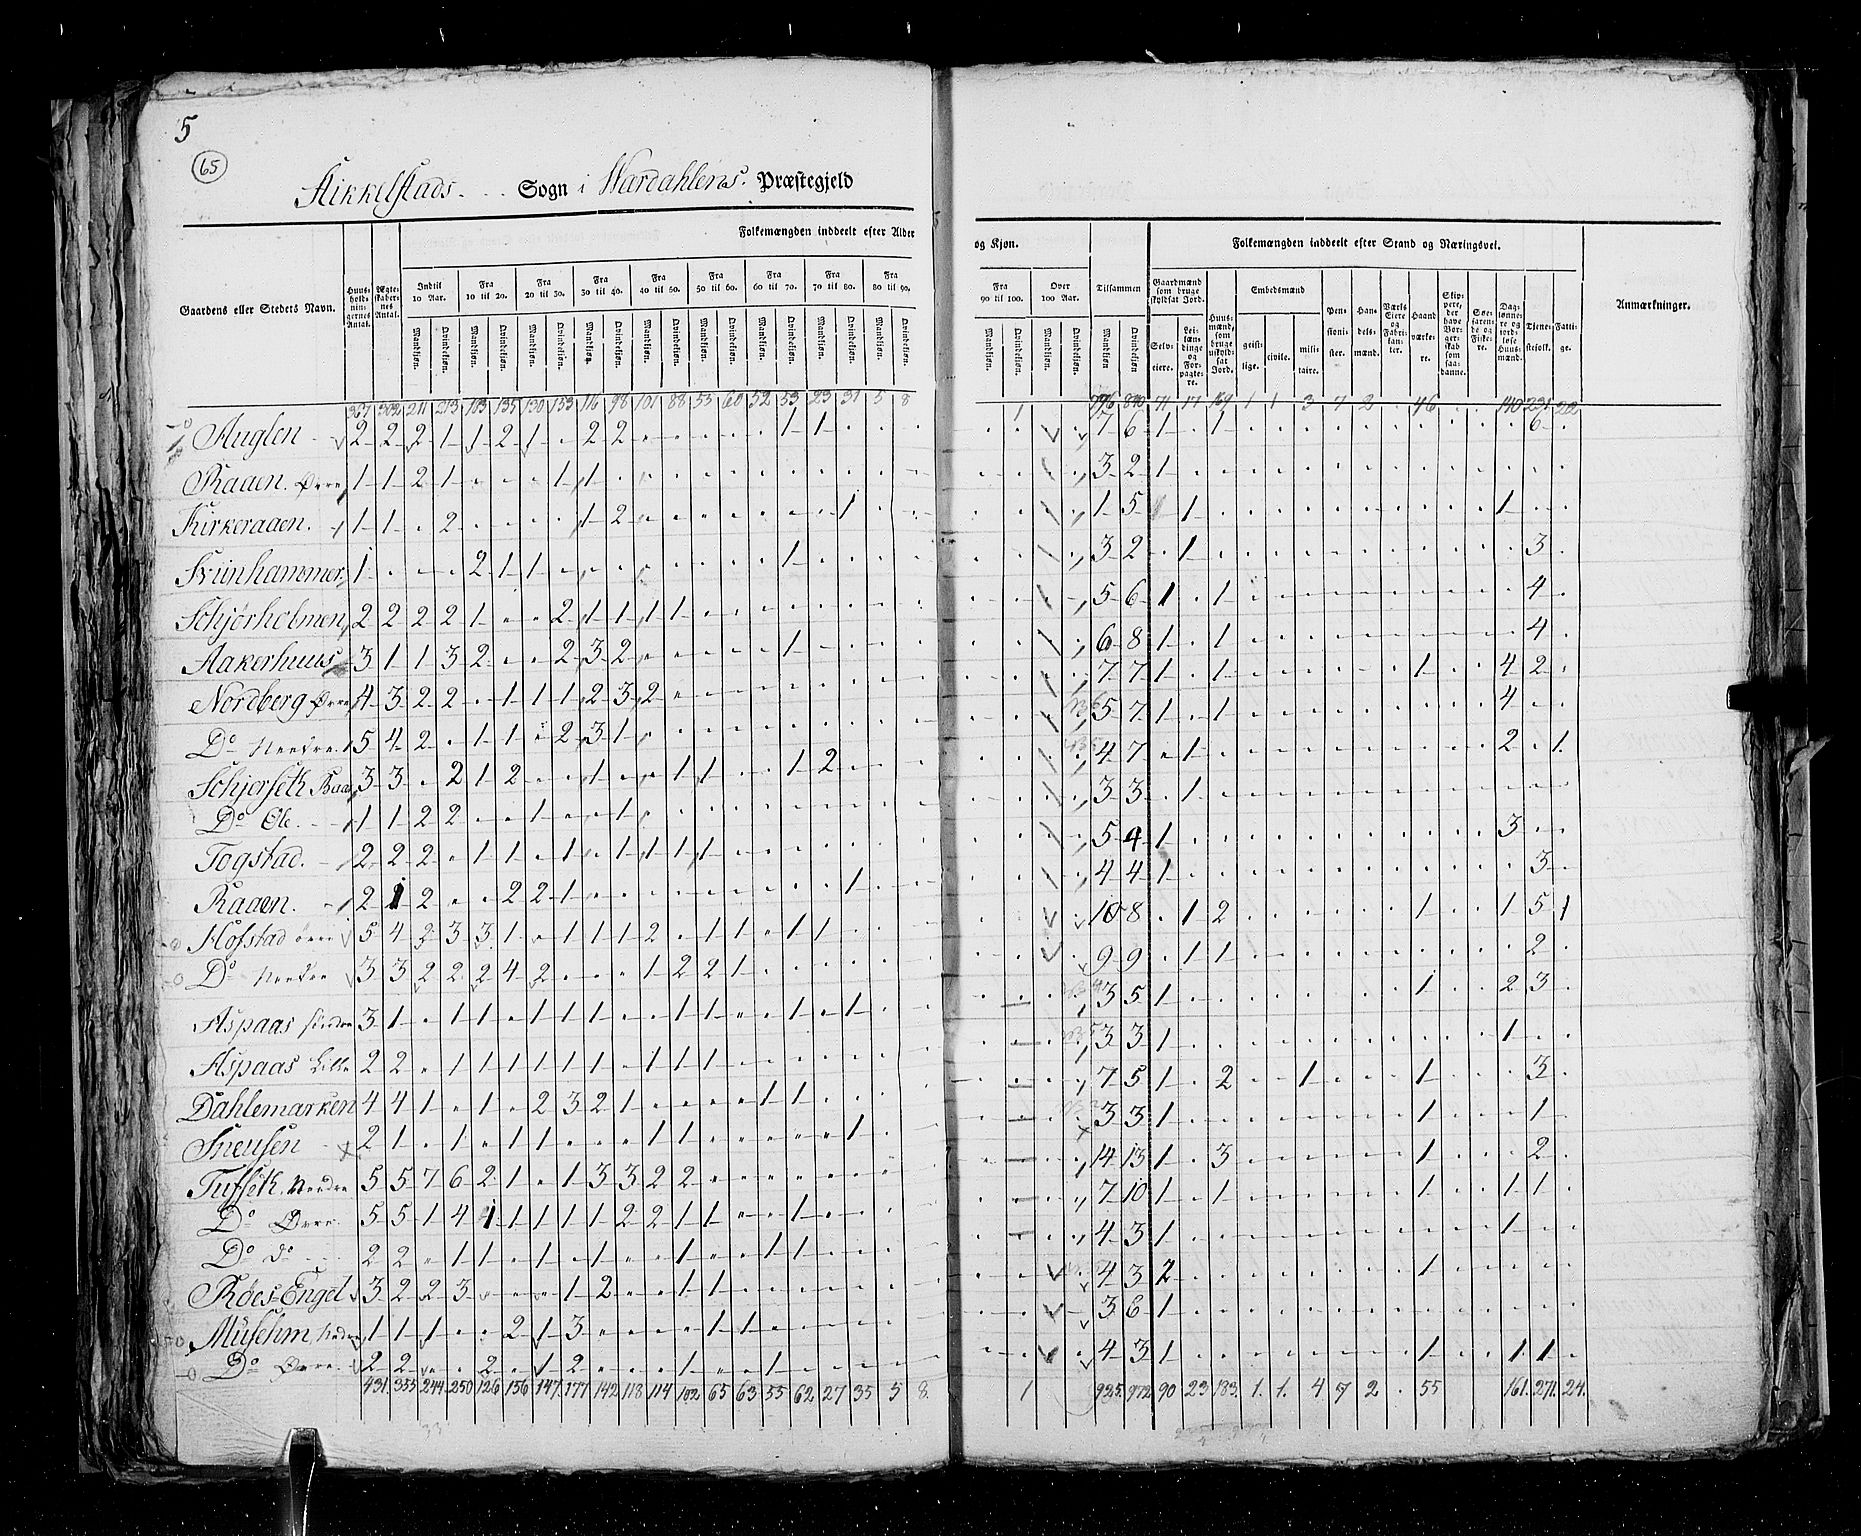 5
65
Stikkelstads. Sogn i Værdahlens. Præstegjeld
Folkemængden inddeelt efter Alder og Kjøn.
Folkemængden inddeelt efter Stand og Næringsvei.
Gaardens eller Stedets Navn.
Huusholdningernes Antal.
Ægteskabernes Antal.
Indtil 10 Aar. Fra 10 til 20. Fra 20 til 30. Fra 30 til 40. Fra 40 til 50. Fra 50 til 60. Fra 60 til 70. Fra 70 til 80. Fra 80 til 90. Fra 90 til 100. Over 100 Aar. Tilsammen
Mandkjøn. Qvindekjøn.
Gaardmænd som bruge skyldsat Jord.
Selveiere.
Leilændinge og Forpagtere.
Huusmænd, som bruge uskyldsat Jord.
Embedsmænd
geistlige. civile. militaire.
Pensionister.
Handelsmænd.
Værks Eiere og Fabrikanter.
Haandværkere.
Skippere, der have Borgerskab som saadanne.
Søefarende og Fiskere.
Dagslønnere og jordløse Huusmænd.
Tjenestefolk.
Fattige.
Anmærkninger.
367 302 211 213 103 135 130 153 116 98 101 88 53 60 52 53 23 31 5 8 1 796 840 71 17 169 1 1 3 7 2 46 140 231 22
Auglen 2 2 2 1 1 2 1 2 2 1 1 7 6 1 1 6
Raaen Øvre 1 1 2 1 1 1 3 2 1
Kirkeraaen. 1 1 2 1 2 1 1 5 1 1
Sviinhammer 1 2 1 1 1 3 2 1 3
Schjørholmen 2 2 2 2 1 2 1 1 1 1 5 6 1 1 4
Aakerhuus 3 1 1 3 2 2 3 2 1 6 8 1 1 4
Nordberg Øvre 4 3 2 2 1 1 1 2 3 2 7 7 1 1 1 4 2
Do Needre 5 4 2 1 1 2 3 1 5 7 1 1 4
Schjerseth 3 3 2 1 2 1 1 1 1 2 4 7 1 2 1
Do Ole. 1 1 2 2 1 1 3 3 1
Togstad. 2 2 2 1 1 1 1 1 1 1 5 4 1 3
Raaen. 2 1 2 2 2 1 1 4 4 1 3
Hofstad øvre 5 4 2 3 3 1 1 1 1 2 1 1 1 1 10 8 1 2 1 1 5 1
Do Needre 3 3 2 2 2 4 2 1 2 2 1 9 9 1 1 2
Aspaas søndre 3 1 1 1 1 1 1 1 1 1 3 5 1 1 2 3
Aspaas Lille 2 2 1 1 1 1 1 1 1 1 1 3 3 1 1
Dahlemarken 4 4 1 1 2 3 2 1 1 1 7 5 1 2 1 1 3
Sneusen 2 1 1 1 1 1 1 1 3 3 1 1 1
Tufseth. Nerdre 5 5 7 6 2 1 1 3 3 2 2 14 13 1 3 1 2
Do Øvre. 5 5 1 4 1 1 1 1 1 2 2 1 1 1 7 10 1 1 1 1 1
Do do 2 2 1 1 1 1 1 1 1 4 3 1 1
Røes Engel 3 2 2 3 1 2 1 1 4 3 2 1
Musehm 1 1 1 2 1 3 1 1 3 6 1
Do Øvre. 2 2 2 1 2 1 1 4 3 1 1 1 1
431. 355 244 250 126 156 147 177 142 118 114 102 65 63 55 62 27 35 5 8. 1 925 972 90 23 183. 1. 1. 4 7 2 55 161. 271. 24.